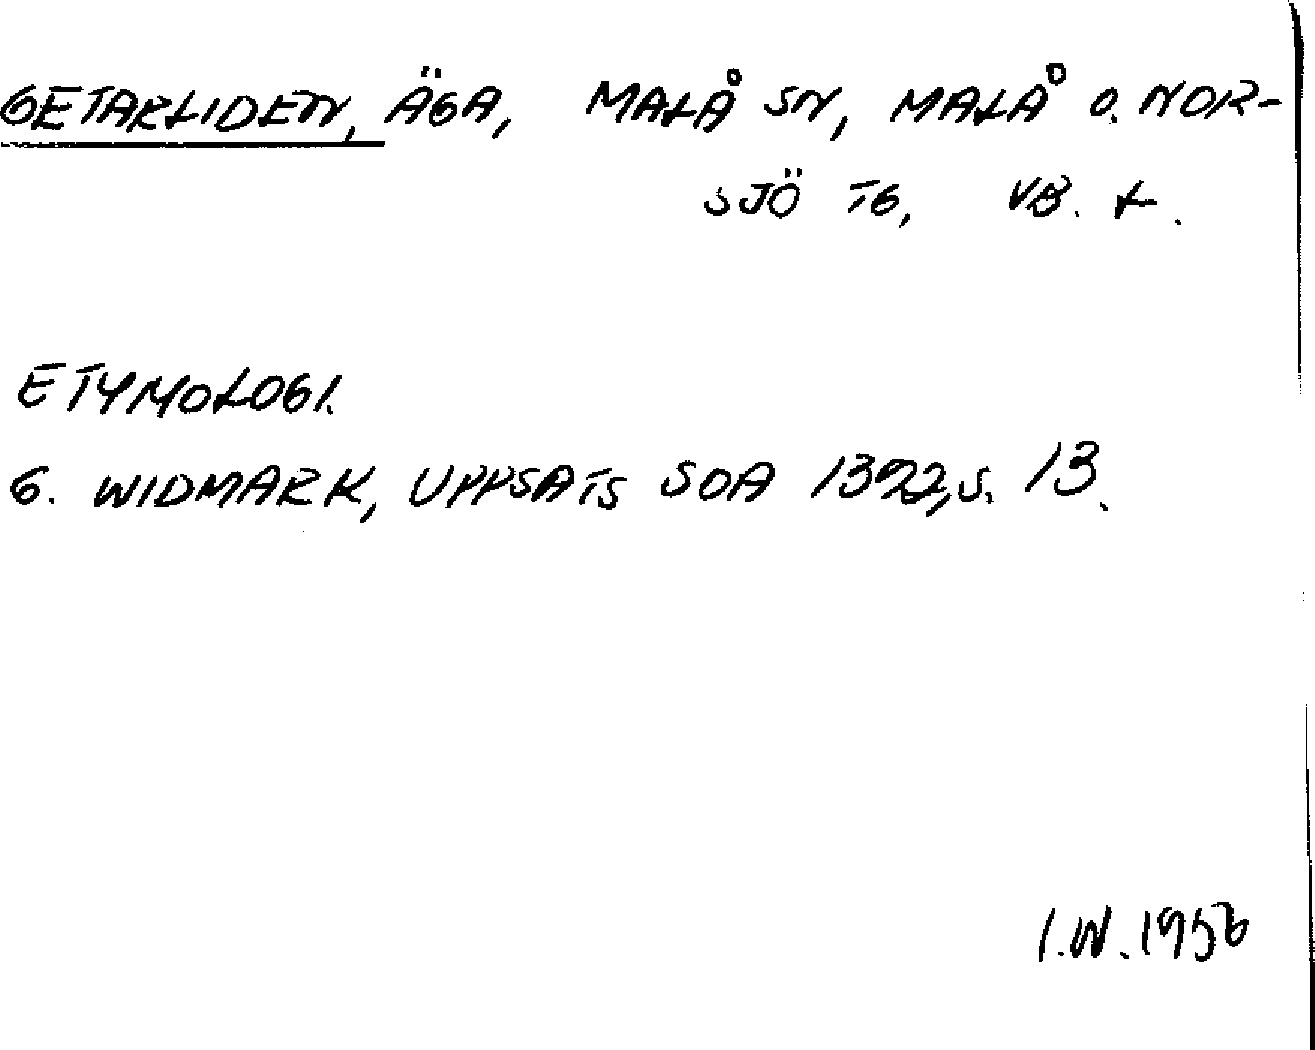 GETARLIDEN, ÄGA, MALÅ SN, MALÅ O. NOR-
SJÖ TG, VB. L.
ETYMOLOGI.
G. WIDMARK, UPPSATS SOA 1392, S. 13.
I.W. 1956